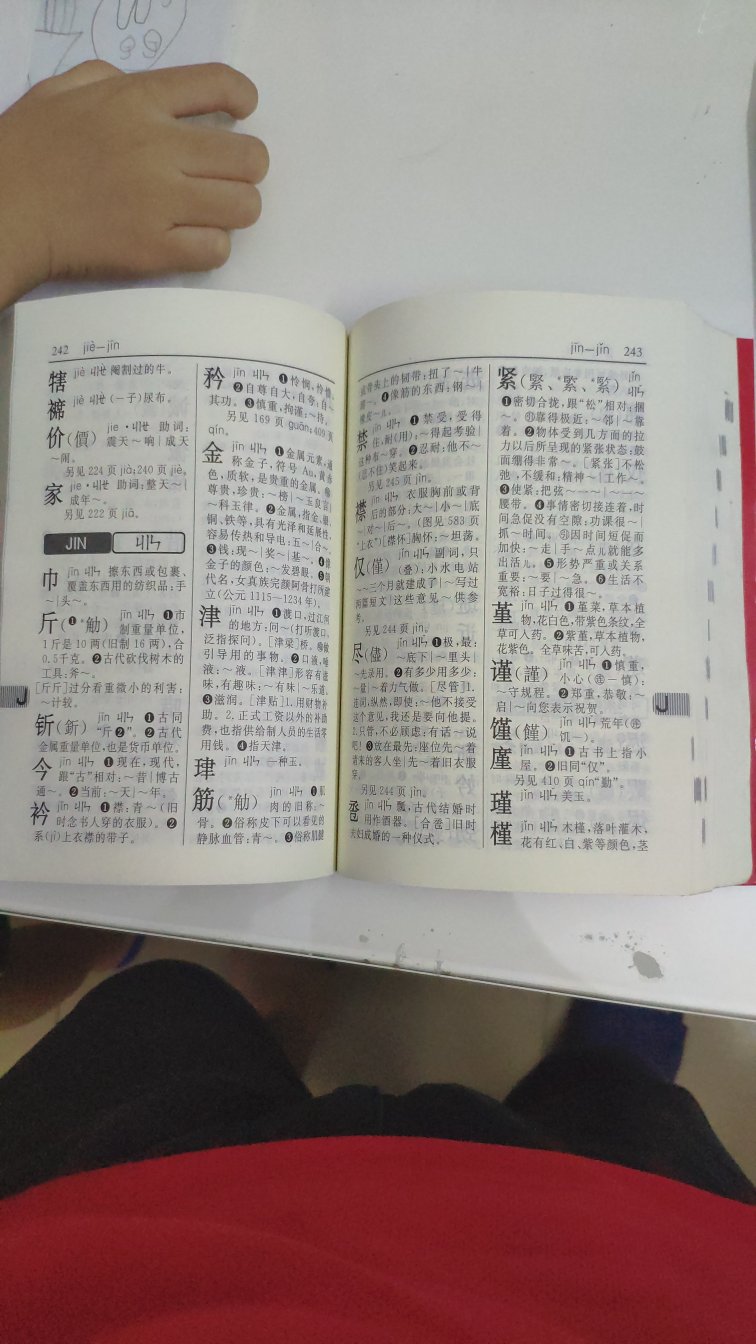 242 jiè—jīn
犗 jiè ㄐㄧㄝˋ 阉割过的牛。
褯 jiè ㄐㄧㄝˋ (—子)尿布。
价(價) jie ·ㄐㄧㄝ 助词:
震天～响|成天
～闹。
另见 224 页 jià;240 页 jiè。
家 jie ·ㄐㄧㄝ 助词:整天～|
成年～。
另见 222 页 jiā。
JIN ㄐㄧㄣ
巾 jīn ㄐㄧㄣ 擦东西或包裹、
覆盖东西用的纺织品:手
～|头～。
斤(❶*觔) jīn ㄐㄧㄣ ❶市
制重量单位,
1斤是10两(旧制16两),合
0.5千克。❷古代砍伐树木的
工具:斧～。
[斤斤]过分看重微小的利害:
～计较。
釿(釿) jīn ㄐㄧㄣ ❶古同
“斤❷”。❷古代
金属重量单位,也是货币单位。
今 jīn ㄐㄧㄣ ❶现在,现代,
跟“古”相对:～昔|博古
通～。❷当前:～天|～年。
衿 jīn ㄐㄧㄣ ❶襟:青～(旧
时念书人穿的衣服)。❷
系(jì)上衣襟的带子。
矜 jīn ㄐㄧㄣ ❶怜悯,怜惜。
❷自尊自大,自夸:自～
其功。❸慎重,拘谨:～持。
另见 169 页 guān;409 页
qín。
金 jīn ㄐㄧㄣ ❶金属元素,通
称金子,符号 Au,黄赤
色,质软,是贵重的金属。
尊贵,珍贵:～榜|～玉良言|
～科玉律。❷金属,指金、银、
铜、铁等,具有光泽和延展性,
容易传热和导电:五～|合～。
❸钱:现～|奖～|基～。❹像
金子的颜色:～发碧眼。❺朝
代名,女真族完颜阿骨打所建
立(公元1115—1234年)。
津 jīn ㄐㄧㄣ ❶渡口,过江河
的地方:问～(打听渡口,
泛指探问)。[津梁]桥。喻做
引导用的事物。❷口液,唾
液:～液。[津津]形容有滋
味,有趣味:～有味|～乐道。
❸滋润。[津贴]1.用财物补
助。2.正式工资以外的补助
费,也指供给制人员的生活零
用钱。❹指天津。
珒 jīn ㄐㄧㄣ 一种玉。
筋(*觔) jīn ㄐㄧㄣ ❶肌
肉的旧称:～
骨。❷俗称皮下可以看见的
静脉血管:青～。❸俗称肌腱
jīn—jǐn 243
或骨头上的韧带:扭了～|牛
❹像筋的东西:钢～|
橡皮～儿。
禁 jīn ㄐㄧㄣ ❶禁受,受得
住,耐(用):～得起考验|
这种布～穿。❷忍耐:他不～
(忍不住)笑起来。
另见 245 页 jìn。
襟 jīn ㄐㄧㄣ 衣服胸前或背
后的部分:大～|小～|底
～|对～|后～。(图见583页
“上衣”)[襟怀]胸怀:～坦荡。
仅(僅) jǐn ㄐㄧㄣˇ 副词,只
(叠):小水电站
～～三个月就建成了|～写过
两篇短文|这些意见～供参
考。
另见 244 页 jìn。
尽(儘) jǐn ㄐㄧㄣˇ ❶极,最:
～底下|～里头|
～先录用。❷有多少用多少:
～量|～着力气做。[尽管]1.
连词,纵然,即使:～他不接受
这个意见,我还是要向他提。
2.只管,不必顾虑:有话～说
吧!❸放在最先:座位先～着
请来的客人坐|先～着旧衣服
穿。
另见 244 页 jìn。
卺 jǐn ㄐㄧㄣˇ 瓢,古代结婚时
用作酒器。[合卺]旧时
夫妇成婚的一种仪式。
紧(緊、*緊、*緊) jǐn ㄐㄧㄣˇ
❶密切合拢,跟“松”相对:捆
～。㊀靠得极近:～邻|～靠
着。❷物体受到几方面的拉
力以后所呈现的紧张状态:鼓
面绷得非常～。[紧张]不松
弛,不缓和:精神～|工作～。
❸使紧:把弦～一～|～一～
腰带。❹事情密切接连着,时
间急促没有空隙:功课很～|
抓～时间。㊀因时间短促而
加快:～走|手～点儿就能多
出活儿。❺形势严重或关系
重要:～要|～急。❻生活不
宽裕:日子过得很～。
堇 jǐn ㄐㄧㄣˇ ❶堇菜,草本植
物,花白色,带紫色条纹,全
草可入药。❷紫堇,草本植物,
花紫色。全草味苦,可入药。
谨(謹) jǐn ㄐㄧㄣˇ ❶慎重,
小心(㊥—慎):
～守规程。❷郑重,恭敬:～
启|～向您表示祝贺。
馑(饉) jǐn ㄐㄧㄣˇ 荒年(㊥
饥—)。
廑 jǐn ㄐㄧㄣˇ ❶古书上指小
屋。❷旧同“仅”。
另见 410 页 qín“勤”。
瑾 jǐn ㄐㄧㄣˇ 美玉。
槿 jǐn ㄐㄧㄣˇ 木槿,落叶灌木,
花有红、白、紫等颜色,茎
J
J